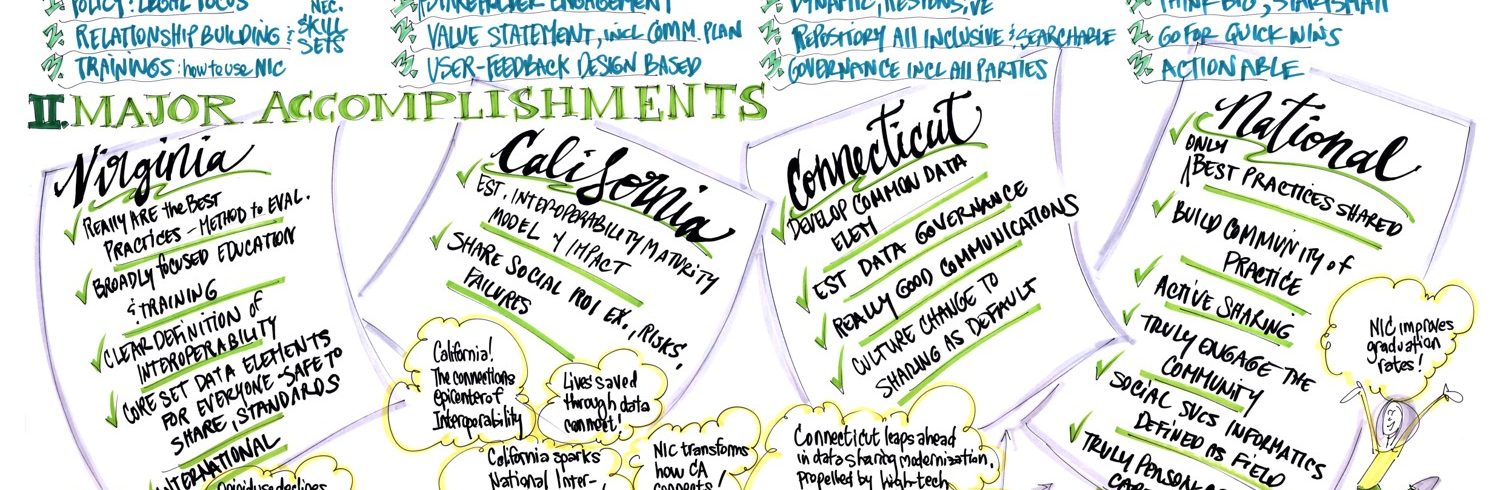 1. POLICY: LEGAL FOCUS
NEC.
SKILL
SETS
2. RELATIONSHIP BUILDING &
3. TRAININGS: how to use NIC
1. STAKEHOLDER ENGAGEMENT
2. VALUE STATEMENT, INCL COMM. PLAN
3. USER-FEEDBACK DESIGN BASED
1. DYNAMIC, RESPONSIVE
2. REPOSITORY All INCLUSIVE & SEARCHABLE
3. GOVERNANCE INCL All PARTIES
1. THINK BIG, START SMALL
2. GO FOR QUICK WINS
3. ACTIONABLE
II. MAJOR ACCOMPLISHMENTS
Virginia
REALLY ARE the BEST
PRACTICES - METHOD to EVAL.
BROADLY focused EDUCATION
& TRAINING
CLEAR DEFINITION of
INTEROPERABILITY
CORE SET DATA ELEMENTS
FOR EVERYONE - SAFE TO
SHARE, STANDARDS
INTERNATIONAL
California
EST. INTEROPERABILITY MATURITY
MODEL & IMPACT
SHARE SOCIAL ROI EX., RISKS,
FAILURES
California!
The connections
epicenter of
Interoporability
Lives saved
through data
connect!
California sparks
National Inter-
NIC transforms
how CA
connects!
Connecticut
DEVELOP COMMON DATA
ELEM
EST DATA GOVERNANCE
REALLY GOOD COMMUNICATIONS
CULTURE CHANGE TO
SHARING AS DEFAULT
Connecticut leaps ahead
in data sharing modernization,
propelled by high-tech
National
ONLY
BEST PRACTICES SHARED
BUILD COMMUNITY of
PRACTICE
ACTIVE SHARING
TRULY ENGAGE THE
COMMUNITY
SOCIAL SVCS INFORMATICS
DEFINED AS FIELD
TRULY
NIC improves
graduation
rates!